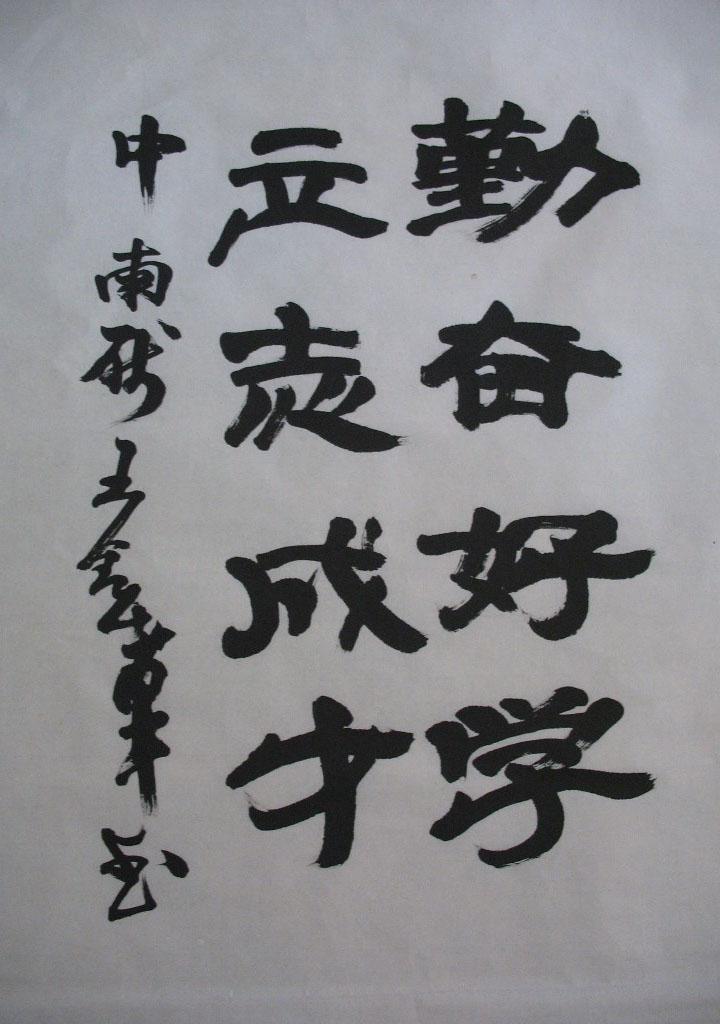 勤奋好学
立志成才
中南
王
书